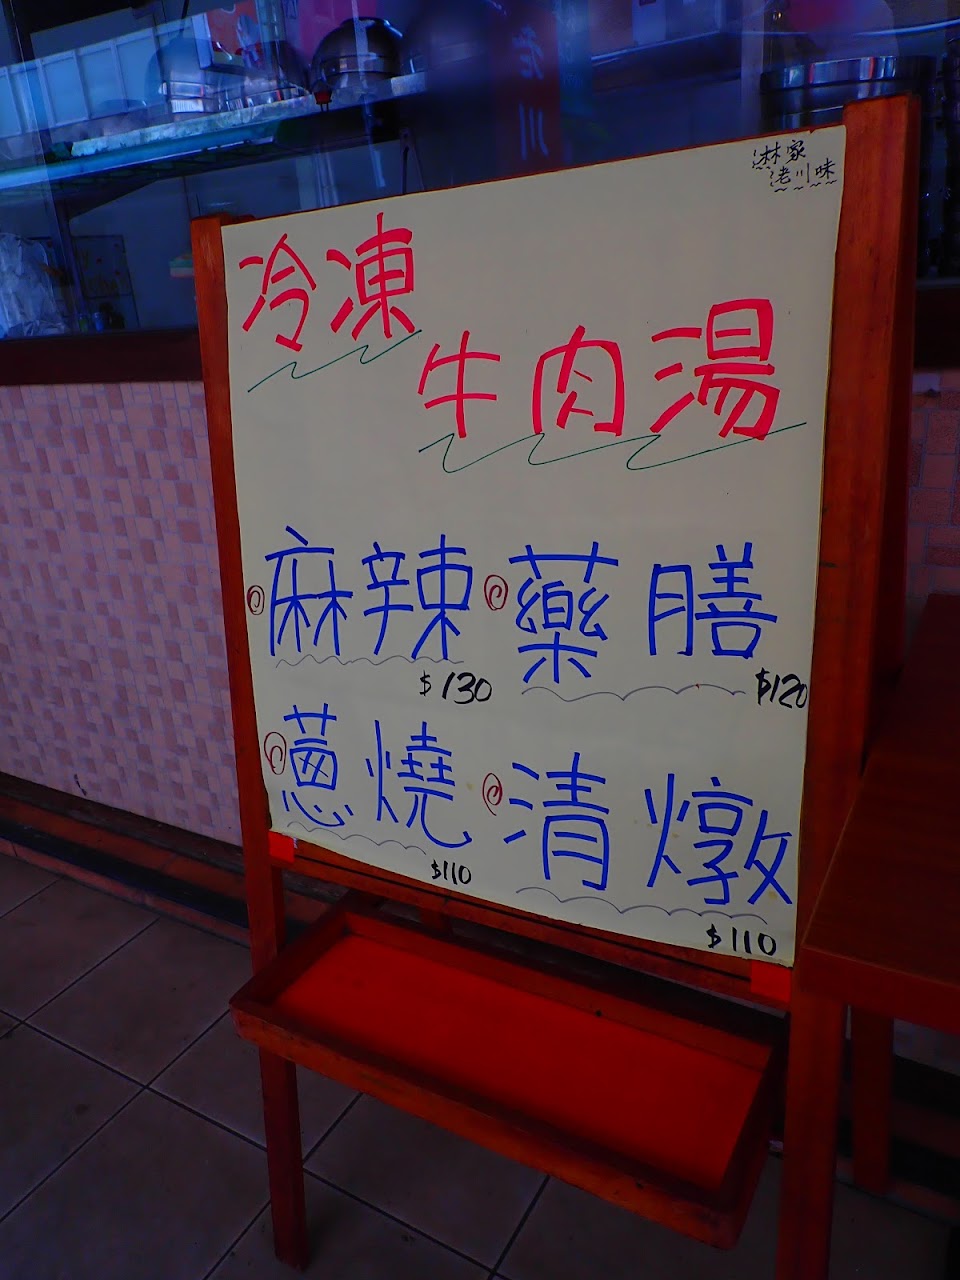 林家
老川味
冷凍
牛肉湯
麻辣
$130
藥膳
$120
蔥燒
$110
清燉
$110
老川